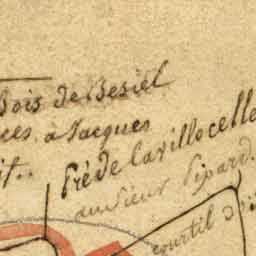 Bois de Besiel
à Jacques
Pré de lavillocelle
au Sieur Pipard.
courtil